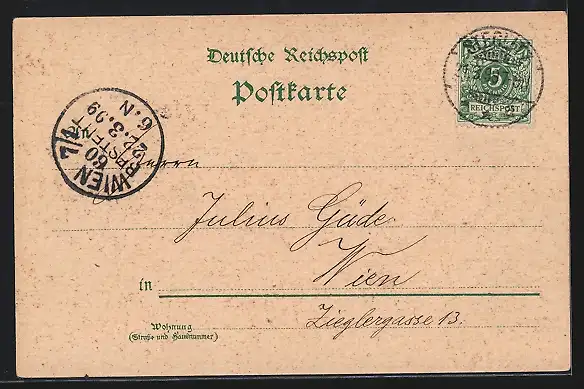 BERLIN
5
REICHSPOST
Deutsche Reichspost
Postkarte
WIEN 7/1
60
BESTELLT
22.3.99
6.N
Herrn
Julius Güde
Wien
in
Zieglergasse 13.
Wohnung
(Straße und Hausnummer)